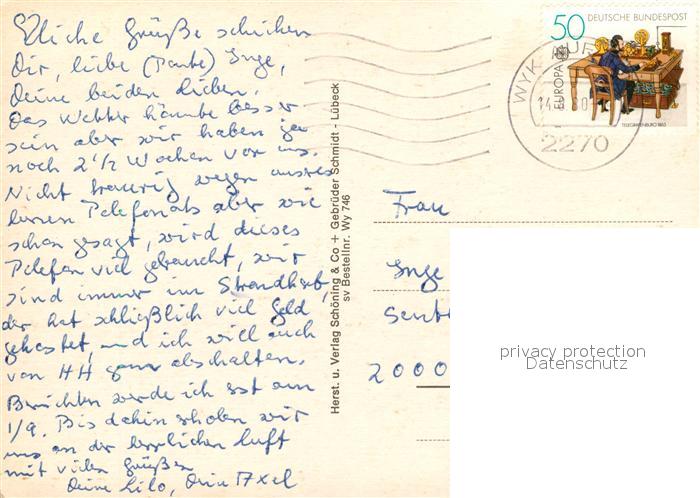 Etliche Grüße schicken
Dir, liebe (Tante) Inge,
Deine beiden Lieben.
Das Wetter könnte besser
sein aber wir haben ja
noch 2 1/2 Wochen vor uns.
Nicht traurig wegen unseres
leeren Telefonats aber wie
schon gesagt, wird dieses
Telefon viel gebraucht, wir
sind immer im Strandkorb,
der hat schließlich viel Geld
gekostet, und ich will auch
von HH ganz abschalten.
Berichten werde ich erst am
1/9. Bis dahin erholen wir
uns an der herrlichen Luft
mit vielen Grüßen
Deine Lilo, Dein Axel
Herst. u. Verlag Schöning & Co + Gebrüder Schmidt - Lübeck
sv Bestellnr. Wy 746
50 DEUTSCHE BUNDESPOST
EUROPA
TELEGRAFENBÜRO 1863
WYK
2270
Frau
Inge
2000
privacy protection
Datenschutz